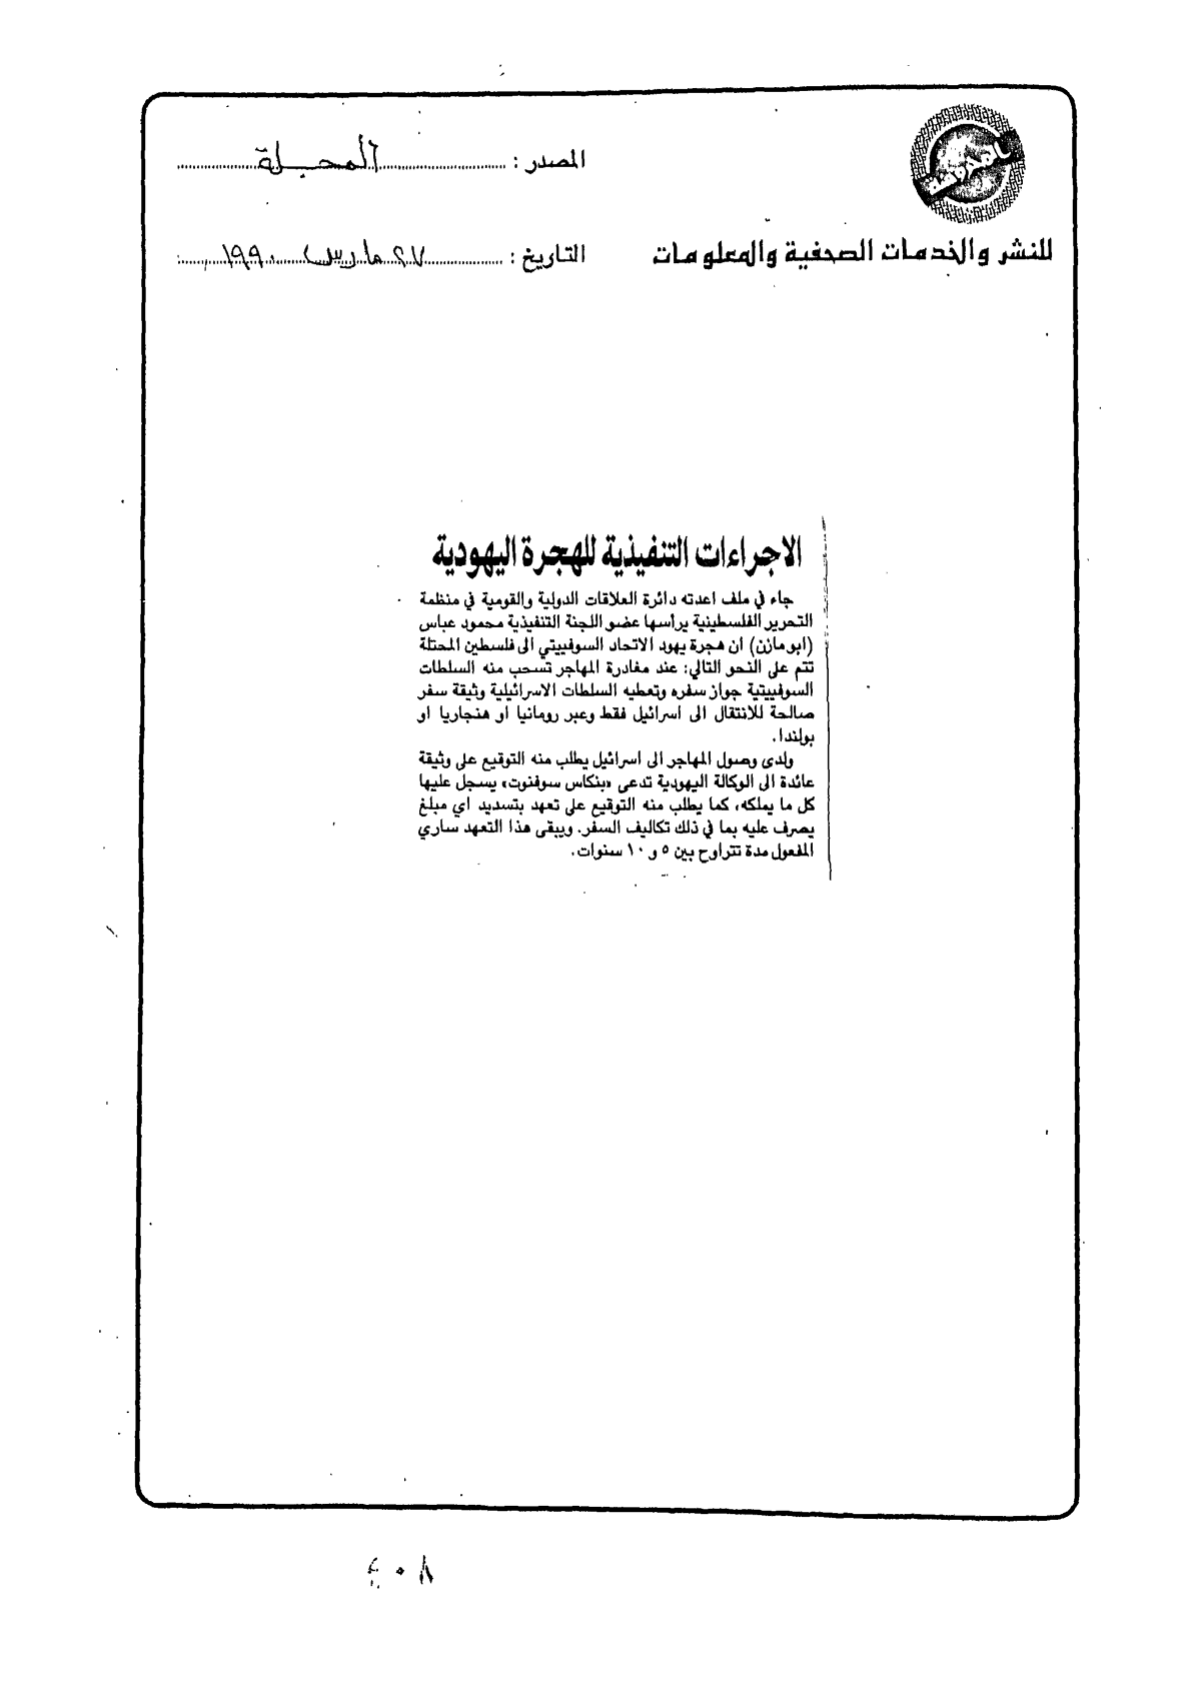 المصدر : المجلة
للنشر والخدمات الصحفية والمعلومات
التاريخ : ٢٧ مارس ١٩٩٠
الاجراءات التنفيذية للهجرة اليهودية
جاء في ملف اعدته دائرة العلاقات الدولية والقومية في منظمة
التحرير الفلسطينية يرأسها عضو اللجنة التنفيذية محمود عباس
(ابو مازن) ان هجرة يهود الاتحاد السوفييتي الى فلسطين المحتلة
تتم على النحو التالي: عند مغادرة المهاجر تسحب منه السلطات
السوفييتية جواز سفره وتعطيه السلطات الاسرائيلية وثيقة سفر
صالحة للانتقال الى اسرائيل فقط وعبر رومانيا او هنجاريا او
بولندا.
ولدى وصول المهاجر الى اسرائيل يطلب منه التوقيع على وثيقة
عائدة الى الوكالة اليهودية تدعى «بنكاس سوفنوت» يسجل عليها
كل ما يملكه، كما يطلب منه التوقيع على تعهد بتسديد اي مبلغ
يصرف عليه بما في ذلك تكاليف السفر. ويبقى هذا التعهد ساري
المفعول مدة تتراوح بين ٥ و ١٠ سنوات.
٤٠٨